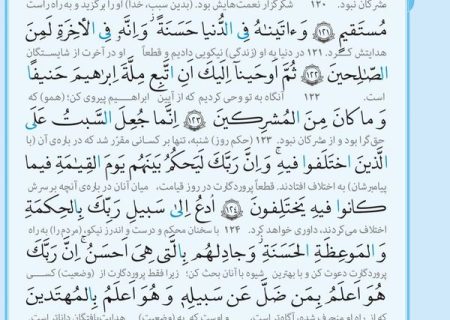 مشرکان نبود. ۱۲۰ شکرگزار نعمت‌هایش بود. (بدین سبب، خدا) او را برگزید و به راه راست
مُسْتَقِيمٍ ۝١٢١ وَءَاتَيْنَـٰهُ فِي الدُّنْيا حَسَنَةً ۖ وَإِنَّهُ فِي الْآخِرَةِ لَمِنَ
هدایتش کرد. ۱۲۱ در دنیا به او (زندگی) نیکویی دادیم و قطعاً او در آخرت از شایستگان
الصّـٰلِحينَ ۝١٢٢ ثُمَّ أَوْحَيْنا إِلَيْكَ أَنِ اتَّبِعْ مِلَّةَ إِبراهيمَ حَنيفًا
است. ۱۲۲ آنگاه به تو وحی کردیم که از آیین ابراهیم پیروی کن؛ (همو) که
وَ ما كانَ مِنَ الْمُشرِكينَ ۝١٢٣ إِنَّما جُعِلَ السَّبتُ عَلَى
حق‌گرا بود و از مشرکان نبود. ۱۲۳ (حکم روز) شنبه، تنها بر کسانی مقرر شد که در باره‌ی آن (با
الَّذينَ اخْتَلَفوا فيهِ ۚ وَإِنَّ رَبَّكَ لَيَحكُمُ بَينَهُم يَومَ القِيـٰمَةِ فيما
پیامبرشان) به اختلاف افتادند. قطعاً پروردگارت در روز قیامت، میان آنان در باره‌ی آنچه بر سرش
كانوا فيهِ يَختَلِفونَ ۝١٢٤ اُدعُ إِلىٰ سَبيلِ رَبِّكَ بِالحِكمَةِ
اختلاف می‌کردند، داوری خواهد کرد. ۱۲۴ با سخنان محکم و درست و اندرز نیکو، (مردم را) به راه
وَ المَوعِظَةِ الحَسَنَةِ ۖ وَ جادِلهُم بِالَّتي هِيَ أَحسَنُ ۚ إِنَّ رَبَّكَ
پروردگارت دعوت کن و با بهترین شیوه با آنان بحث کن؛ زیرا فقط پروردگارت از (وضعیت) کسی
هُوَ أَعلَمُ بِمَن ضَلَّ عَن سَبيلِهِ ۖ وَ هُوَ أَعلَمُ بِالمُهتَدينَ
که از راه او منحرف شده، آگاه‌تر است. و اوست که به (وضعیت) هدایت‌یافتگان داناتر است.